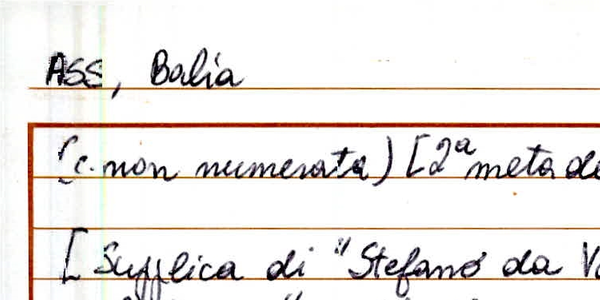 ASS, Balìa
(c. non numerata) [2ª metà de
[Supplica di "Stefano da V